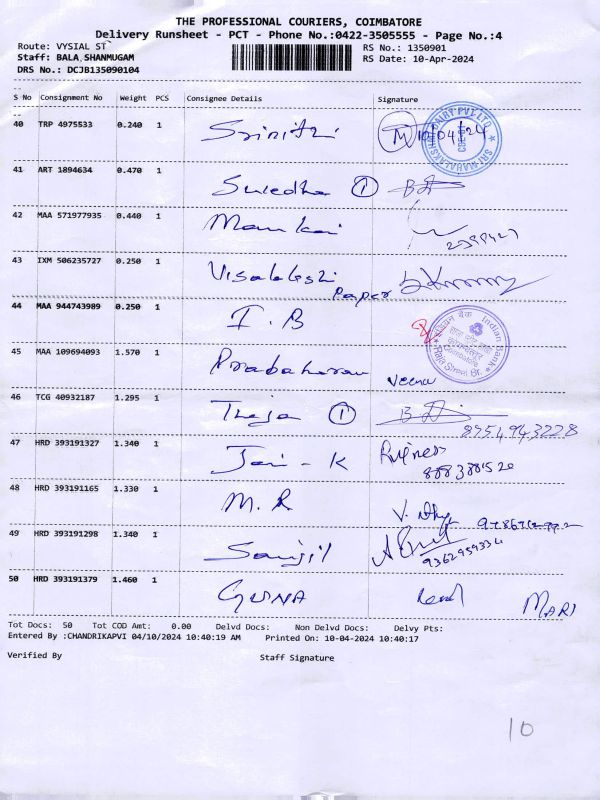 THE PROFESSIONAL COURIERS, COIMBATORE
Delivery Runsheet - PCT - Phone No.:0422-3505555 - Page No.:4
Route: VYSIAL ST RS No.: 1350901
Staff: BALA,SHANMUGAM RS Date: 10-Apr-2024
DRS No.: DCJB135090104
S No Consignment No Weight PCS Consignee Details Signature
40 TRP 4975533 0.240 1 Srinithi M 10/04/24
41 ART 1894634 0.470 1 Suledha 1
42 MAA 571977935 0.440 1
43 IXM 506235727 0.250 1 Visalakshi Paper
44 MAA 944743989 0.250 1 I.B
Indian Bank
Coimbatore
Raja Street Br.
45 MAA 109694093 1.570 1 Prabaharan Veena
46 TCG 40932187 1.295 1 Theja 1 8754943228
47 HRD 393191327 1.340 1 Jai - K
48 HRD 393191165 1.330 1 M.R
49 HRD 393191298 1.340 1
50 HRD 393191379 1.460 1 GUNA MARI
Tot Docs: 50 Tot COD Amt: 0.00 Delvd Docs: Non Delvd Docs: Delvy Pts:
Entered By :CHANDRIKAPVI 04/10/2024 10:40:19 AM Printed On: 10-04-2024 10:40:17
Verified By Staff Signature
10